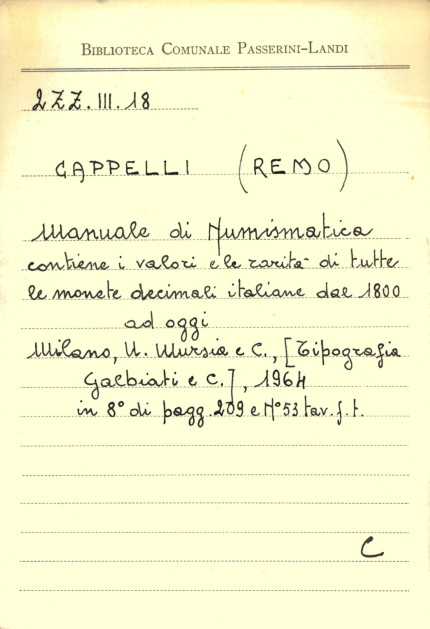 BIBLIOTECA COMUNALE PASSERINI-LANDI
2ZZ.III.18
CAPPELLI (REMO)
Manuale di Numismatica
contiene i valori e le rarità di tutte
le monete decimali italiane dal 1800
ad oggi
Milano, U. Mursia e C., [Tipografia
Galbiati e C.], 1964
in 8° di pagg. 209 e N° 53 tav. f. t.
C